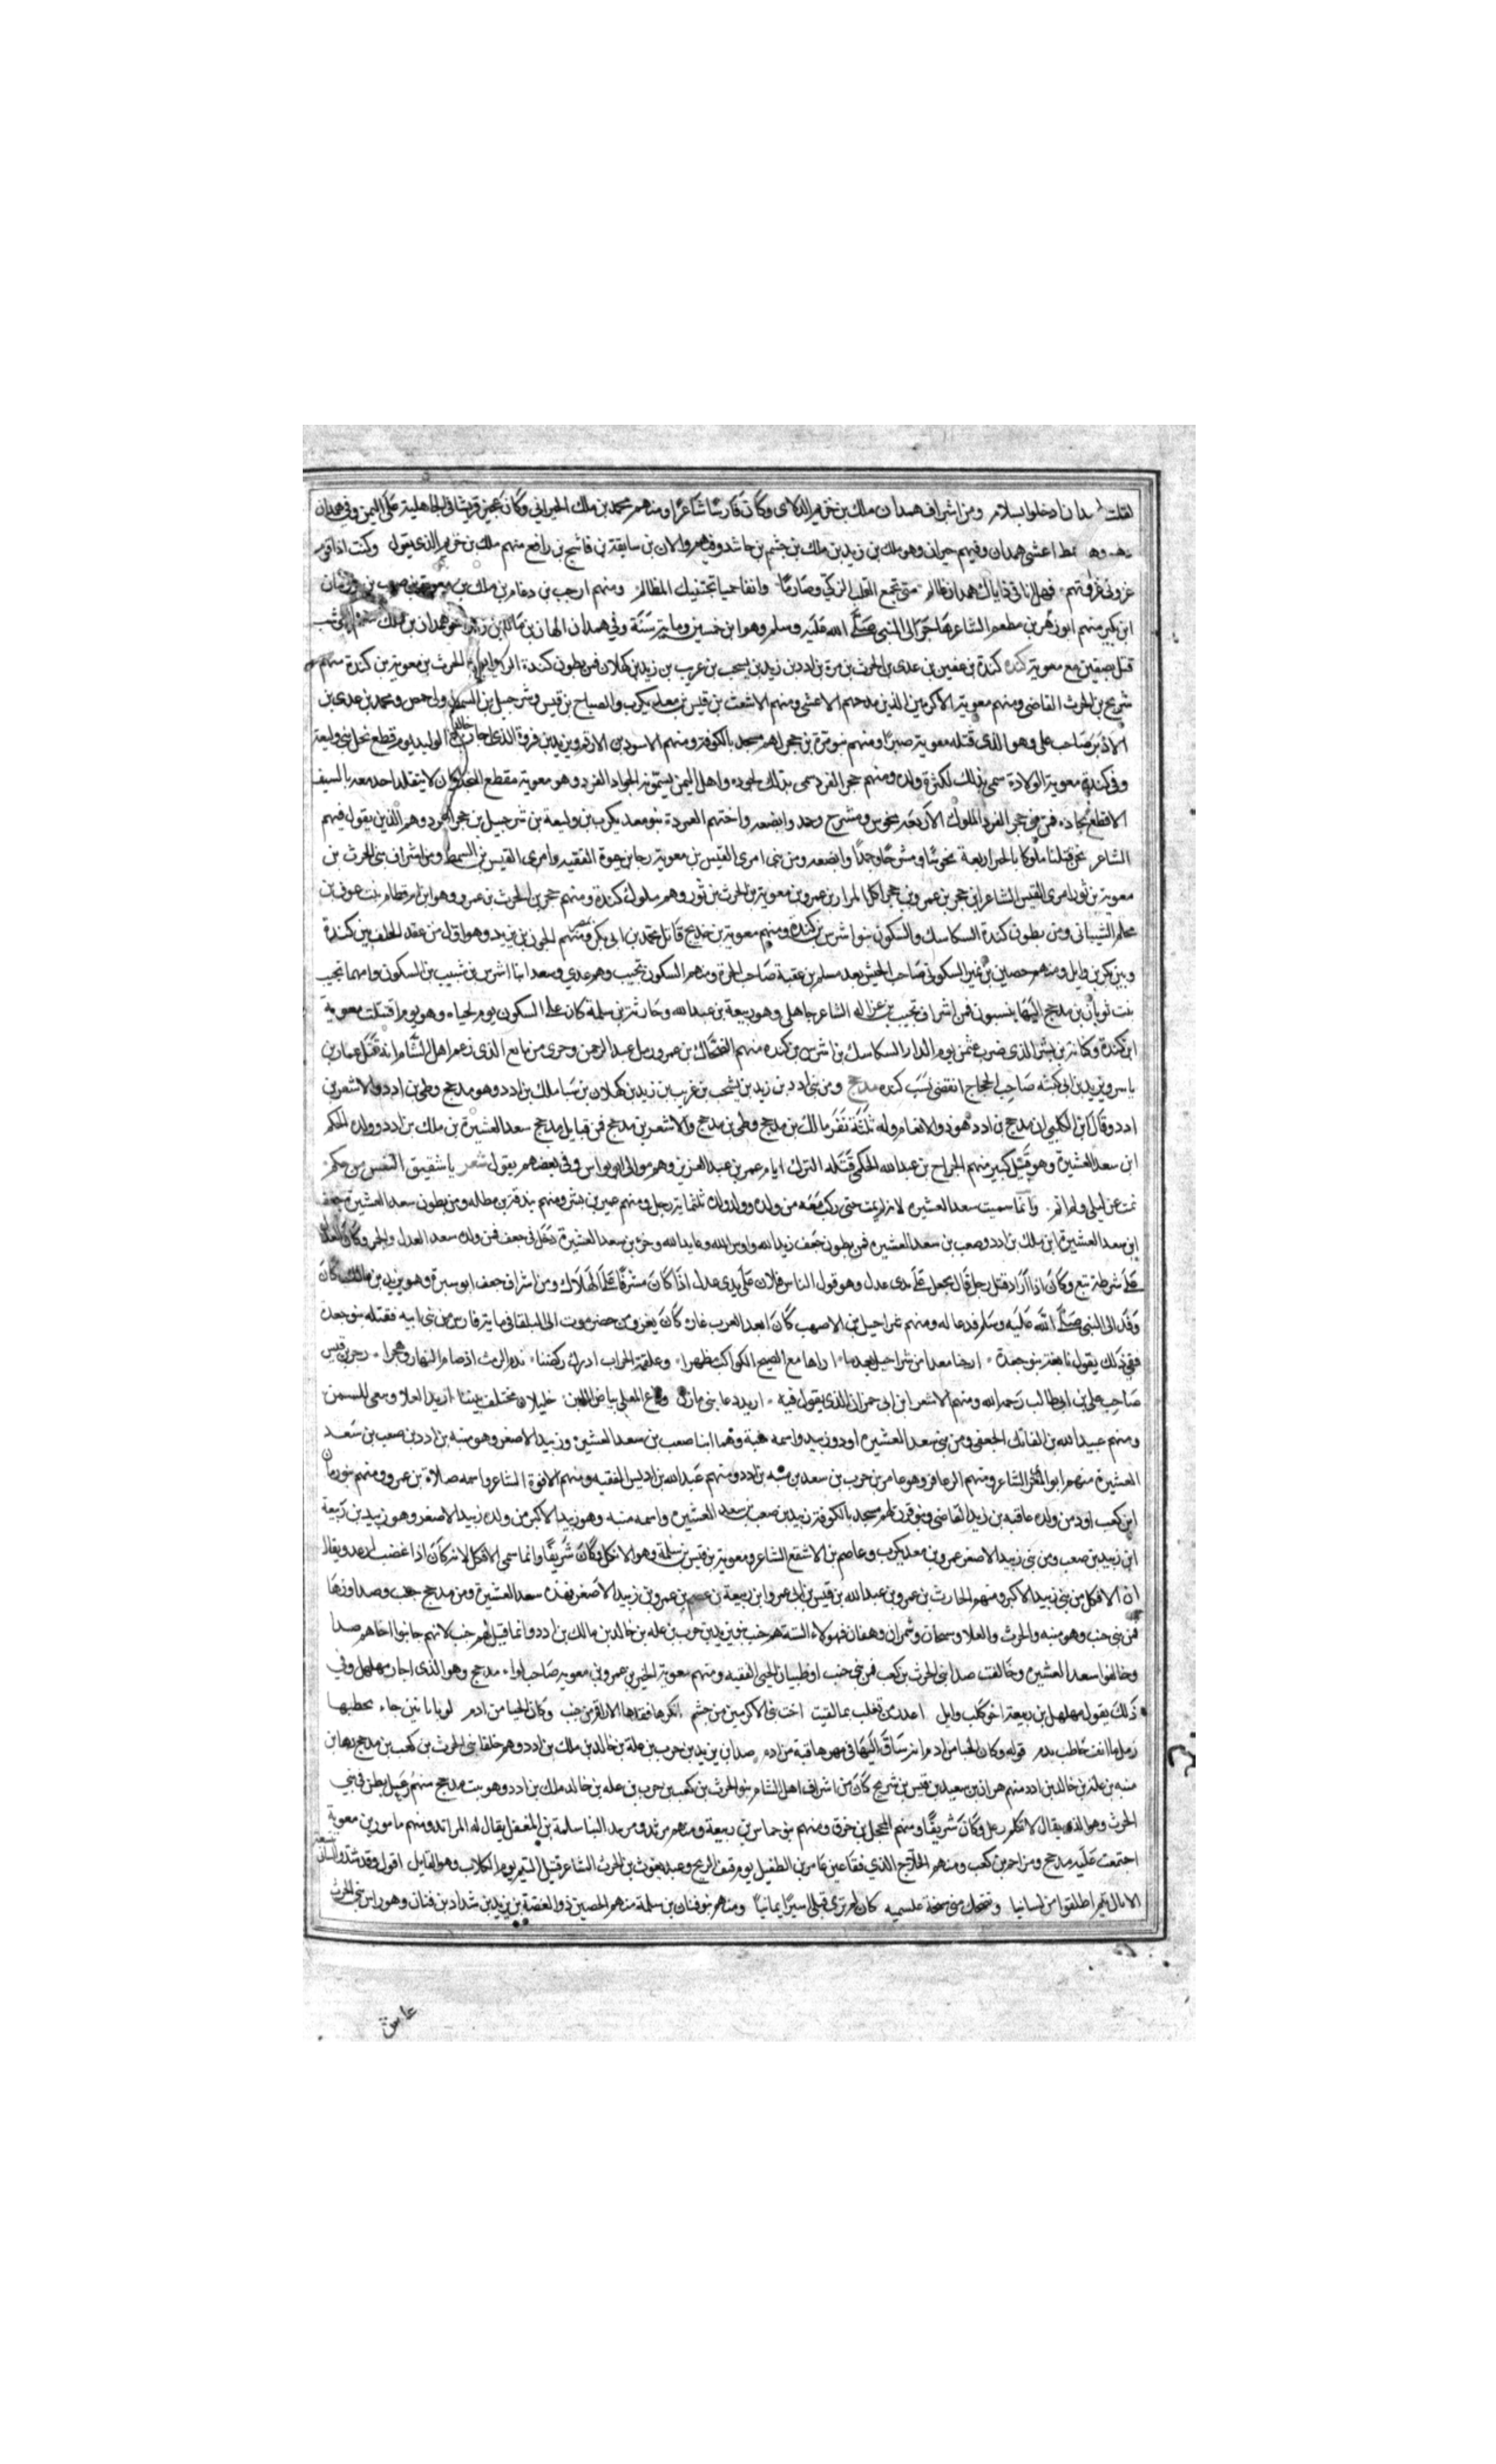 لقلت لهمدان ادخلوا بسلام ومن اشراف همدان ملك بن حريم الدلاي وكان فارسًا شاعرًا ومنهم محمد بن ملك الخيراني وكان يجير قريشا في الجاهلية على اليمن وفي همدان
رهط اعشى همدان وفيهم خيران وهو ملك بن زيد بن ملك بن جشم بن حاشد ومنهم والان بن سابقة بن ناشج بن رافع منهم ملك بن حريم الذي يقول وكنت اذا قوم
غزوني غزوتهم فهل انا في ذا يال همدان ظالم متى تجمع القلب الزكي وصارمًا وانفا حميا تجتنبك المظالم ومنهم ارحب بن دعام بن ملك بن معوية بن صعب بن دومان
ابن بكير منهم ابو رهم بن مطعم الشاعر هاجر الى النبي صلى الله عليه وسلم وهو ابن خمسين وماية سنة وفي همدان الهان بن مالك بن زيد اخو همدان بن ملك منهم
قتل بصفين مع معوية كندة كندة بن عفير بن عدي بن الحرث بن مرة بن ادد بن زيد بن يشجب بن عريب بن زيد بن كهلان فمن بطون كندة الرايش بن الحرث بن معوية بن كندة منهم
شريح بن الحرث القاضي ومنهم معوية الاكرمين الذين مدحهم الاعشى ومنهم الاشعث بن قيس بن معدي كرب والصباح بن قيس وشرحبيل بن السمط ولي حمص ومحمد بن عدي بن
الادبر صاحب علي وهو الذي قتله معوية صبرًا ومنهم بنو مرة بن حجر لهم مسجد بالكوفة ومنهم الاسود بن الارقم ويزيد بن فروة الذي اجار خالد بن الوليد يوم قطع نخل بني وليعة
وفي كندة معوية الولادة سمي بذلك لكثرة ولده ومنهم حجر الفرد سمي بذلك لجوده واهل اليمن يسمون الجواد الفرد وهو معوية مقطع النجد كان لا يتقلد احد معه بالسيف
الا قطع نجاده فمن بني حجر الفرد الملوك الاربعة مخوس ومشرح وجمد وابضعه واختهم العمردة بنو معديكرب بن وليعة بن شرحبيل بن حجر الفرد وهم الذين يقول فيهم
الشاعر نحن قتلنا ملوكا بالحر اربعة مخوسًا ومشرحًا وجمدًا وابضعه ومن بني امرئ القيس بن معوية رجا بن حيوة الفقيه وامرئ القيس بن السمط ومن اشراف بني الحرث بن
معوية بن ثور امرئ القيس الشاعر ابن حجر بن عمرو بن حجر اكل المرار بن عمرو بن معوية بن الحرث بن ثور وهم ملوك كندة ومنهم حجر بن الحرث بن عمرو وهو ابن ام قطام بنت عوف بن
محلم الشيباني ومن بطون كندة السكاسك والسكون بنو اشرس بن كندة ومنهم معوية بن خديج قاتل محمد بن ابي بكر ومنهم الجون بن يزيد وهو اول من عقد الحلف بين كندة
وبين بكر بن وايل ومنهم حصين بن نمير السكوني صاحب الجيش بعد مسلم بن عقبة صاحب الحرة ومنهم السكون تجيب وهم عدي وسعد ابنا اشرس بن شبيب بن السكون وامهما تجيب
بنت ثوبان بن مدحج اليها ينسبون فمن اشراف تجيب بن غزاله الشاعر جاهلي وهو ربيعة بن عبد الله وحارثة بن سلمة كان على السكون يوم لحياه وهو يوم اقتتلت معوية
ابن كندة وكنانة بن بشر الذي ضرب عثمن يوم الدار السكاسك بن اشرس بن كنده منهم الضحاك بن عمرو رمل عبد الرحمن وحوى من ماتع الذي زعم اهل الشام انه قتل عمار بن
ياسر ويزيد بن ابي كبشه صاحب الحجاج انقضى نسب كنده مدحج ومن بني ادد بن زيد بن يشجب بن عريب بن زيد بن كهلان بن سبا ملك بن ادد وهو مدحج وطي بن ادد والاشعر بن
ادد وقال ابن الكلبي ان مدحج بن ادد هو ذو الانعام وله ثلثة نفر مالك بن مدحج وطي بن مدحج والاشعر بن مدحج فمن قبايل مدحج سعد العشيرة بن ملك بن ادد وولده الحكم
ابن سعد العشيرة وهو قبيل كبير منهم الجراح بن عبد الله الحكمي قتله الترك ايام عمر بن عبد العزيز وهم موالي ابو نواس وفي بعضهم يقول شعر يا شقيق النفس من حكم
نمت عن ليلي ولم انم وانما سميت سعد العشيره لانه لم يمت حتى ركب معه من ولده وولد ولده ثلثماية رجل ومنهم عمير بن بشر ومنهم بندقة بن مظله ومن بطون سعد العشيرة جعف
ابن سعد العشيرة ابن ملك بن ادد وصعب بن سعد العشيره فمن بطون جعف زيد الله واوس الله وعايد الله وحر بن سعد العشيرة دخل في جعف فمن ولده سعد العدل والحر وكان العدل
على شرطة تبع وكان اذا اراد قتل رجل قال يجعل على يدي عدل وهو قول الناس فلان على يدي عدل اذا كان مشرفًا على الهلاك ومن اشراف جعف ابو سبرة وهو يزيد بن مالك كان
وفد الى النبي صلى الله عليه وسلم فدعا له ومنهم شراحيل بن الاصهب كان ابعد العرب غارة كان يغزو من حضرموت الى البلقا في ماية فارس من بني ابيه فقتله بنو جعدة
ففي ذلك يقول نابغة بنو جعدة ارحنا معدا من شراحيل بعد ما اراها مع الصبح الكواكب مظهرا وعلقمة الحراب ادرك ركضنا بذي الرمث اذ صام النهار وهجرا زحر بن قيس
صاحب علي بن ابي طالب رحمه الله ومنهم الاشعر ابن ابي حمران الذي يقول فيه اريد دما بني مازن وراع المعلي بياض اللبن خليلان مختلف بيننا اريد العلا وسعى للسمن
ومنهم عبيد الله بن الفاتك الجعفي ومن بني سعد العشيره اود وزبيد واسمه منبه وهما ابنا صعب بن سعد العشيره وزبيد الاصغر وهو منبه بن ادد بن صعب بن سعد
العشيرة منهم ابو المغرا الشاعر ومنهم الزعافر وهو عامر بن حرب بن سعد بن منبه بن ادد ومنهم عبد الله بن ادريس الفقيه ومنهم الافوة الشاعر واسمه صلاة بن عمرو ومنهم بنو رمان
ابن كعب اود من ولده عافيه بن زيد القاضي وبنو قرن لهم مسجد بالكوفة زبيد بن صعب بن سعد العشيره واسمه منبه وهو زبيد الاكبر من ولده زبيد الاصغر وهو زبيد بن ربيعة
ابن زبيد بن صعب ومن بني زبيد الاصغر عمرو بن معد يكرب وعاصم بن الاشقع الشاعر ومعوية بن قيس بن سلمة وهو الافكل وكان شريفًا وانما سمي الافكل لانه كان اذا غضب ارعد ويقال
ان الافكل من بني زبيد الاكبر ومنهم الحارث بن عمرو بن عبد الله بن قيس بن ابي عمرو ابن ربيعة بن عصم بن عمرو بن زبيد الاصغر فهذه سعد العشيرة ومن مدحج جنب وصدا ورها
فمن بني جنب وهو منبه والحرث والعلا وسمحان وشمران وهفان فهولاء الستة هم جنب بنو يزيد بن حرب بن عله بن خالد بن مالك بن ادد وانما قيل لهم جنب لانهم جانبوا اخاهم صدا
وحالفوا سعد العشيره وخالفت صدا بني الحرث بن كعب فمن بني جنب ابو ظبيان الجنبي الفقيه ومنهم معوية الخير بن عمرو بن معويه صاحب لواء مدحج وهو الذي اجار مهلهل وفي
ذلك يقول مهلهل بن ربيعة اخو كليب وايل اعدد من تغلب بما لقيت اخت بني الاكرمين من جشم انكحها فقدها الاراقم من جنب وكان الحبا من ادم لو بابانين جاء يخطبها
زمل ما انف خاطب بدم قوله وكان الحبا من ادم انه ساق اليها في مهرها قبة من ادم صدا بن يزيد بن حرب بن علة بن خالد بن ملك بن ادد وهم حلفا بني الحرث بن كعب بن مدحج رها بن
منبه بن علة بن خالد بن ادد منهم هزان بن سعيد بن قيس بن شريح كان من اشراف اهل الشام بنو الحرث بن كعب بن حرب بن عله بن خالد ملك بن ادد وهو بيت مدحج منهم زعبل بطن في بني
الحرث وهو الذي يقال لا تكلم زعبل وكان شريفًا ومنهم المحجل بن حزن ومنهم بنو حماس بن ربيعة ومنهم مرثد ومريد ابنا سلمة بن المغفل يقال لها المراثد ومنهم مامور بن معوية
اجتمعت عليه مدحج ومزاحم بن كعب ومنهم الحلاج الذي فقا عين عامر بن الطفيل يوم فيف الريح وعبد يغوث بن الحرث الشاعر قتيل التيم يوم الكلاب وهو القايل اقول وقد شدوا لساني بنسعة
الا يال تيم اطلقوا من لسانيا وتضحك مني شيخة عبشميه كان لم ترى قبلي اسيرًا يمانيًا ومنهم بنو قنان بن سلمة منهم الحصين ذو الغصة بن يزيد بن شداد بن قنان وهو راس بني الحرث
عاش